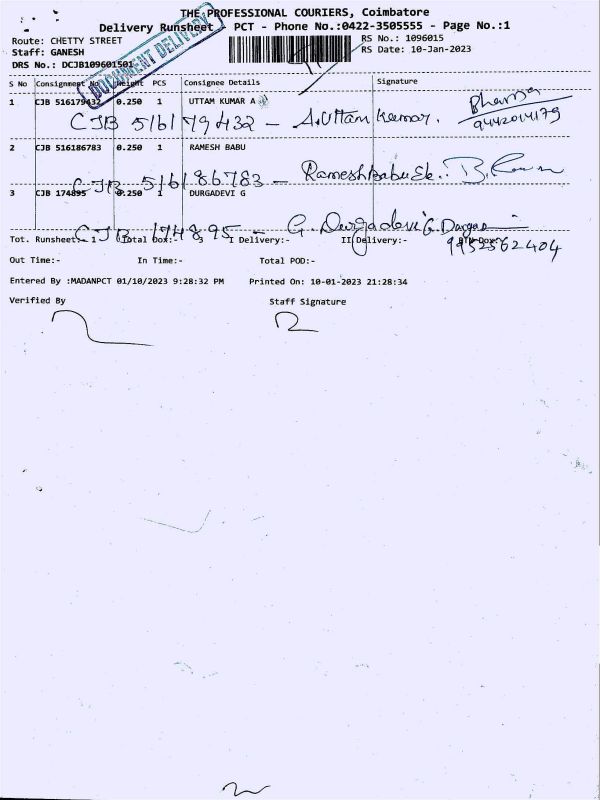 THE PROFESSIONAL COURIERS, Coimbatore
Delivery Runsheet - PCT - Phone No.:0422-3505555 - Page No.:1
Route: CHETTY STREET
RS No.: 1096015
Staff: GANESH
RS Date: 10-Jan-2023
DRS No.: DCJB109601501
DOCUMENT DELIVERY
S No Consignment No Weight PCS Consignee Details Signature
1 CJB 516179432 0.250 1 UTTAM KUMAR A
CJB 516179432 - A.Uttam kumar.
9442014179
2 CJB 516186783 0.250 1 RAMESH BABU
CJB 516186783 -
3 CJB 174895 0.250 1 DURGADEVI G
CJB 174895 - G. Durgadevi
Tot. Runsheet:- 1 Total Dox:- 3 I Delivery:- II Delivery:-
9952562404
Out Time:- In Time:- Total POD:-
Entered By :MADANPCT 01/10/2023 9:28:32 PM Printed On: 10-01-2023 21:28:34
Verified By Staff Signature